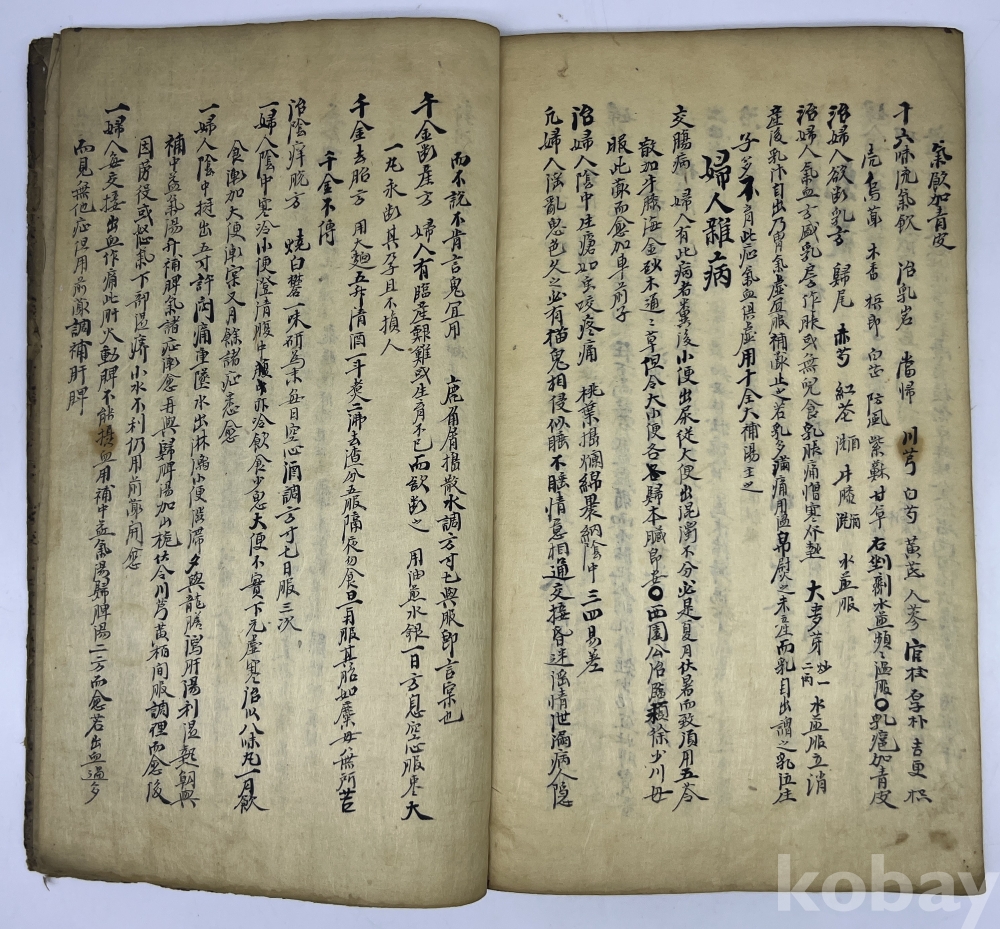 氣飲加青皮
十六味流氣飲 治乳岩 當歸 川芎 白芍 黃芪 人參 官桂 厚朴 吉更 枳
壳 烏藥 木香 梹郎 白芷 防風 紫蘇 甘草 右剉劑水煎頻〻溫服〇乳癰加青皮
治婦人欲斷乳方 歸尾 赤芍 紅花 酒 牛膝 酒 水煎服
治婦人氣血方盛乳房作脹或無兒食乳脹痛憎寒作熱 大麥芽 炒一二兩 水煎服立消
產後乳汁自出乃胃氣虛宜服補藥止之若乳多滿痛用溫帛熨之未產而乳自出謂之乳泣生
子多不育此症氣血俱虛用十全大補湯主之
婦人雜病
交腸病 婦人有此病者糞後小便出尿從大便出混濁不分必是夏月伏暑而致須用五苓
散加牛膝海金砂木通〻草但令大小便各歸本臟即安〇西園公治臨類徐少川母
服此藥而愈加車前子
治婦人陰中生瘡如虫咬疼痛 桃葉搗爛綿裹納陰中 三四易差
凡婦人淫亂鬼色久之必有猫鬼相侵似睡不睡情意相通交接昏迷淫情泄滿病人隱
而不說不肯言鬼宜用 鹿角屑搗散水調方寸匕與服即言宲也
千金斷產方 婦人有臨產艱難或生育不已而欲斷之 用油煎水銀一日方息空心服枣大
一丸永斷其孕且不損人
千金去胎方 用大麯五升清酒一斗煮二沸去渣分五服隔夜勿食旦再服其胎如糜母無所苦
千金不傳
治陰痒脫方 燒白礬一味研為末每日空心酒調方寸七日服三次
一婦人陰中寒冷小便澄清腹中亦冷飲食少思大便不實下元虛寒治以八味丸一月飲
食漸加大便漸宲又月餘諸症悉愈
一婦人陰中挺出五寸許悶痛重墜水出淋漓小便澁滯夕與龍膽瀉肝湯利溫熱朝與
補中益氣湯升補脾氣諸症漸愈再與歸脾湯加山梔茯令川芎黃栢間服調理而愈後
因勞役或怒氣下部溫痒小水不利仍用前藥間愈
一婦人每交接出血作痛此肝火動脾不能攝血用補中益氣湯歸脾湯二方而愈若出血過多
而見無他症但用前藥調補肝脾
kobay